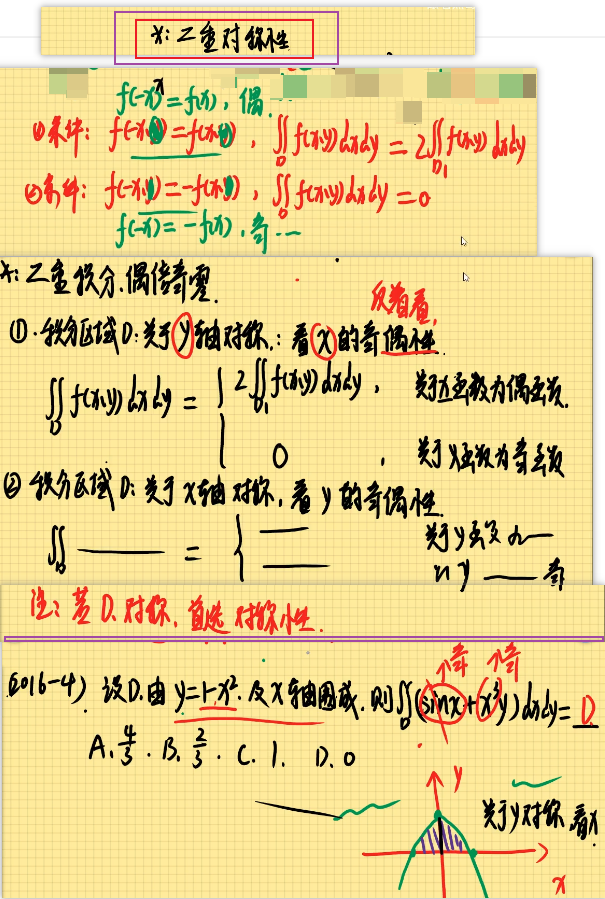 *: 二重对称性
f(-x)=f(x), 偶.
① 条件: f(-x,y)=f(x,y), ∬_D f(x,y)dxdy = 2∬_{D₁} f(x,y)dxdy
② 条件: f(-x,y)=-f(x,y), ∬_D f(x,y)dxdy = 0
f(-x)=-f(x), 奇
*: 二重积分, 偶倍奇零.
反着看,
①. 积分区域D: 关于y轴对称,: 看x的奇偶性.
∬_D f(x,y)dxdy = { 2∬_{D₁} f(x,y)dxdy, 关于x函数为偶函数.
0 , 关于x函数为奇函数
② 积分区域D: 关于x轴对称, 看y的奇偶性.
∬_D —— = { —— 关于y函数
—— y —— 奇
注: 若D.对称, 首选对称性.
奇 奇
(2016-4) 设D.由y=1-x².及x轴围成, 则∬_D(sinx+x³y)dxdy= D
A. 4/3 . B. 2/3 . C. 1. D. 0
y
关于y对称, 看x
x